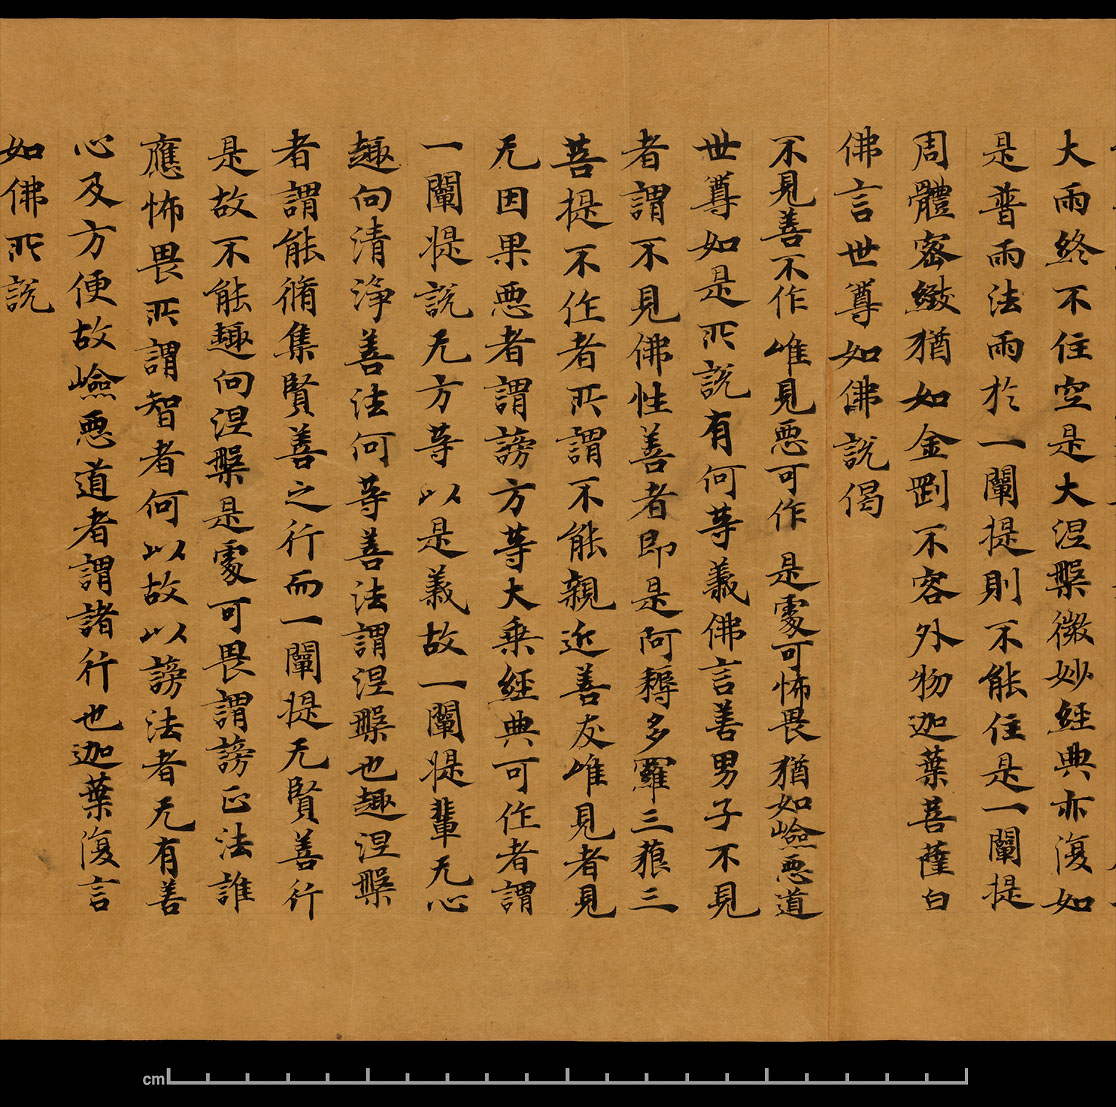 大雨終不住空是大涅槃微妙經典亦復如
是普雨法雨於一闡提則不能住是一闡提
周體密緻猶如金剛不容外物迦葉菩薩白
佛言世尊如佛說偈
不見善不作 唯見惡可作 是處可怖畏 猶如嶮惡道
世尊如是所說有何等義佛言善男子不見
者謂不見佛性善者即是阿耨多羅三藐三
菩提不作者所謂不能親近善友唯見者見
无因果惡者謂謗方等大乘經典可作者謂
一闡提說无方等以是義故一闡提輩无心
趣向清淨善法何等善法謂涅槃也趣涅槃
者謂能脩集賢善之行而一闡提无賢善行
是故不能趣向涅槃是處可畏謂謗正法誰
應怖畏所謂智者何以故以謗法者无有善
心及方便故嶮惡道者謂諸行也迦葉復言
如佛所說